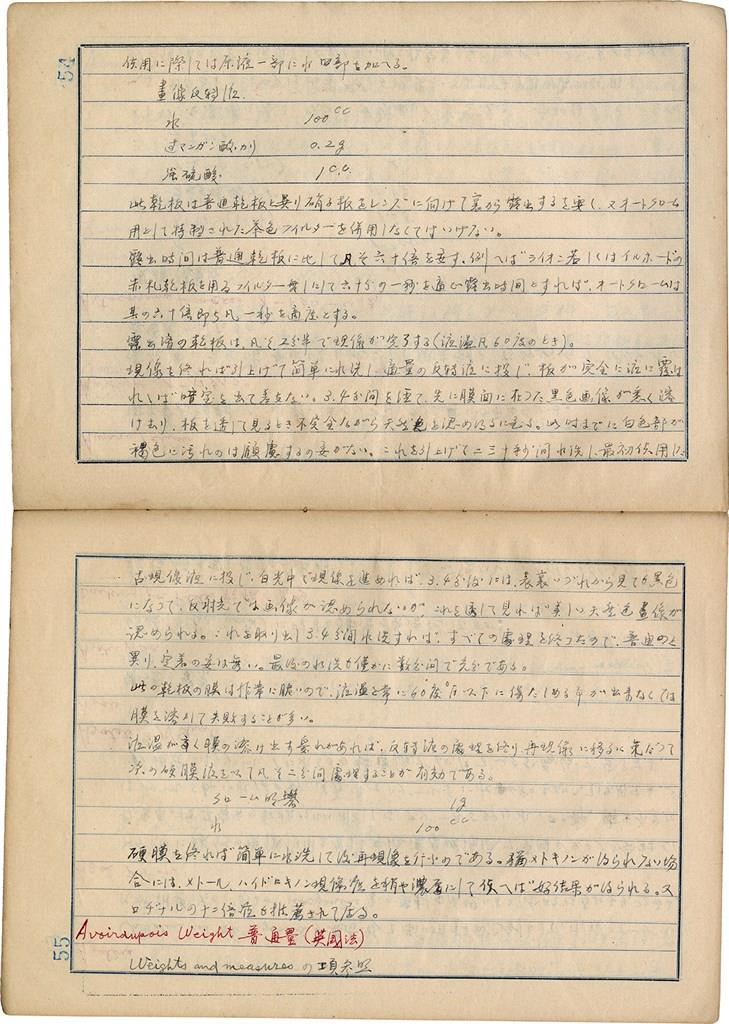 54
使用に際しては原液一部に水四部を加へる。
畫像反轉液.
水 100cc
過マンガン酸カリ 0.2g
強硫酸. 1c.c.
此乾板は普通乾板と異り硝子板をレンズに向けて裏から露出するを要し、又オートクローム
用として特製された茶色フィルターを併用しなくてはいけない。
露出時間は普通乾板に比して凡そ六十倍を要す。例へばライオン若しくはイルホードの
赤札乾板を用ひフィルター無しにて六十分の一秒を適正露出時間とすれば、オートクロームは
其の六十倍即ち凡一秒を適度とする。
露出濟の乾板は、凡そ2分半で現像が完了する(液温凡60度のとき)。
現像を終れば引上げて簡単に水洗し適量の反轉液に投じ、板が完全に液に覆は
れゝば暗室を出て差支ない。3.4分間を經て、先に膜面に在つた黒色画像が悉く溶
け去り、板を透して見るとき不完全ながら天然色を認め得るに至る。此時までに白色部が
褐色に汚れのは顧慮するの要がない。これを引上げて二三十秒間水洗し最初使用した
古現像液に投じ、白光中で現像を進めれば、3.4分後には、表裏いづれから見ても黒色
になつて、反射光では画像が認められないが、これを透して見れば美しい天然色畫像が
認められる。これを取り出し3.4分間水洗すれば、すべての處理を終つたので、普通のと
異り、定着の要は無い。最後の水洗も僅かに数分間で充分である。
此の乾板の膜は非常に脆いので、液温を常に60度°F以下に保たしめる事が出来なくては
膜を溶かして失敗することが多い。
液温が高く膜の溶け出す虞れがあれば、反轉液の處理を終り、再現像に移るに先だつて
次の硬膜液を以て凡そ二分間處理することが有効である。
クローム明礬 1g
水 100cc
硬膜を終れば簡単に水洗して後再現像を行ふのである。猶メトキノンが得られない場
合には、メトール、ハイドロキノン現像液を稍や濃厚にして使へば好結果が得られる。又
ロヂナルの十二倍液も推薦されて居る。
Avoirdupois Weight 普通量(英國法)
Weights and measures の項参照
55